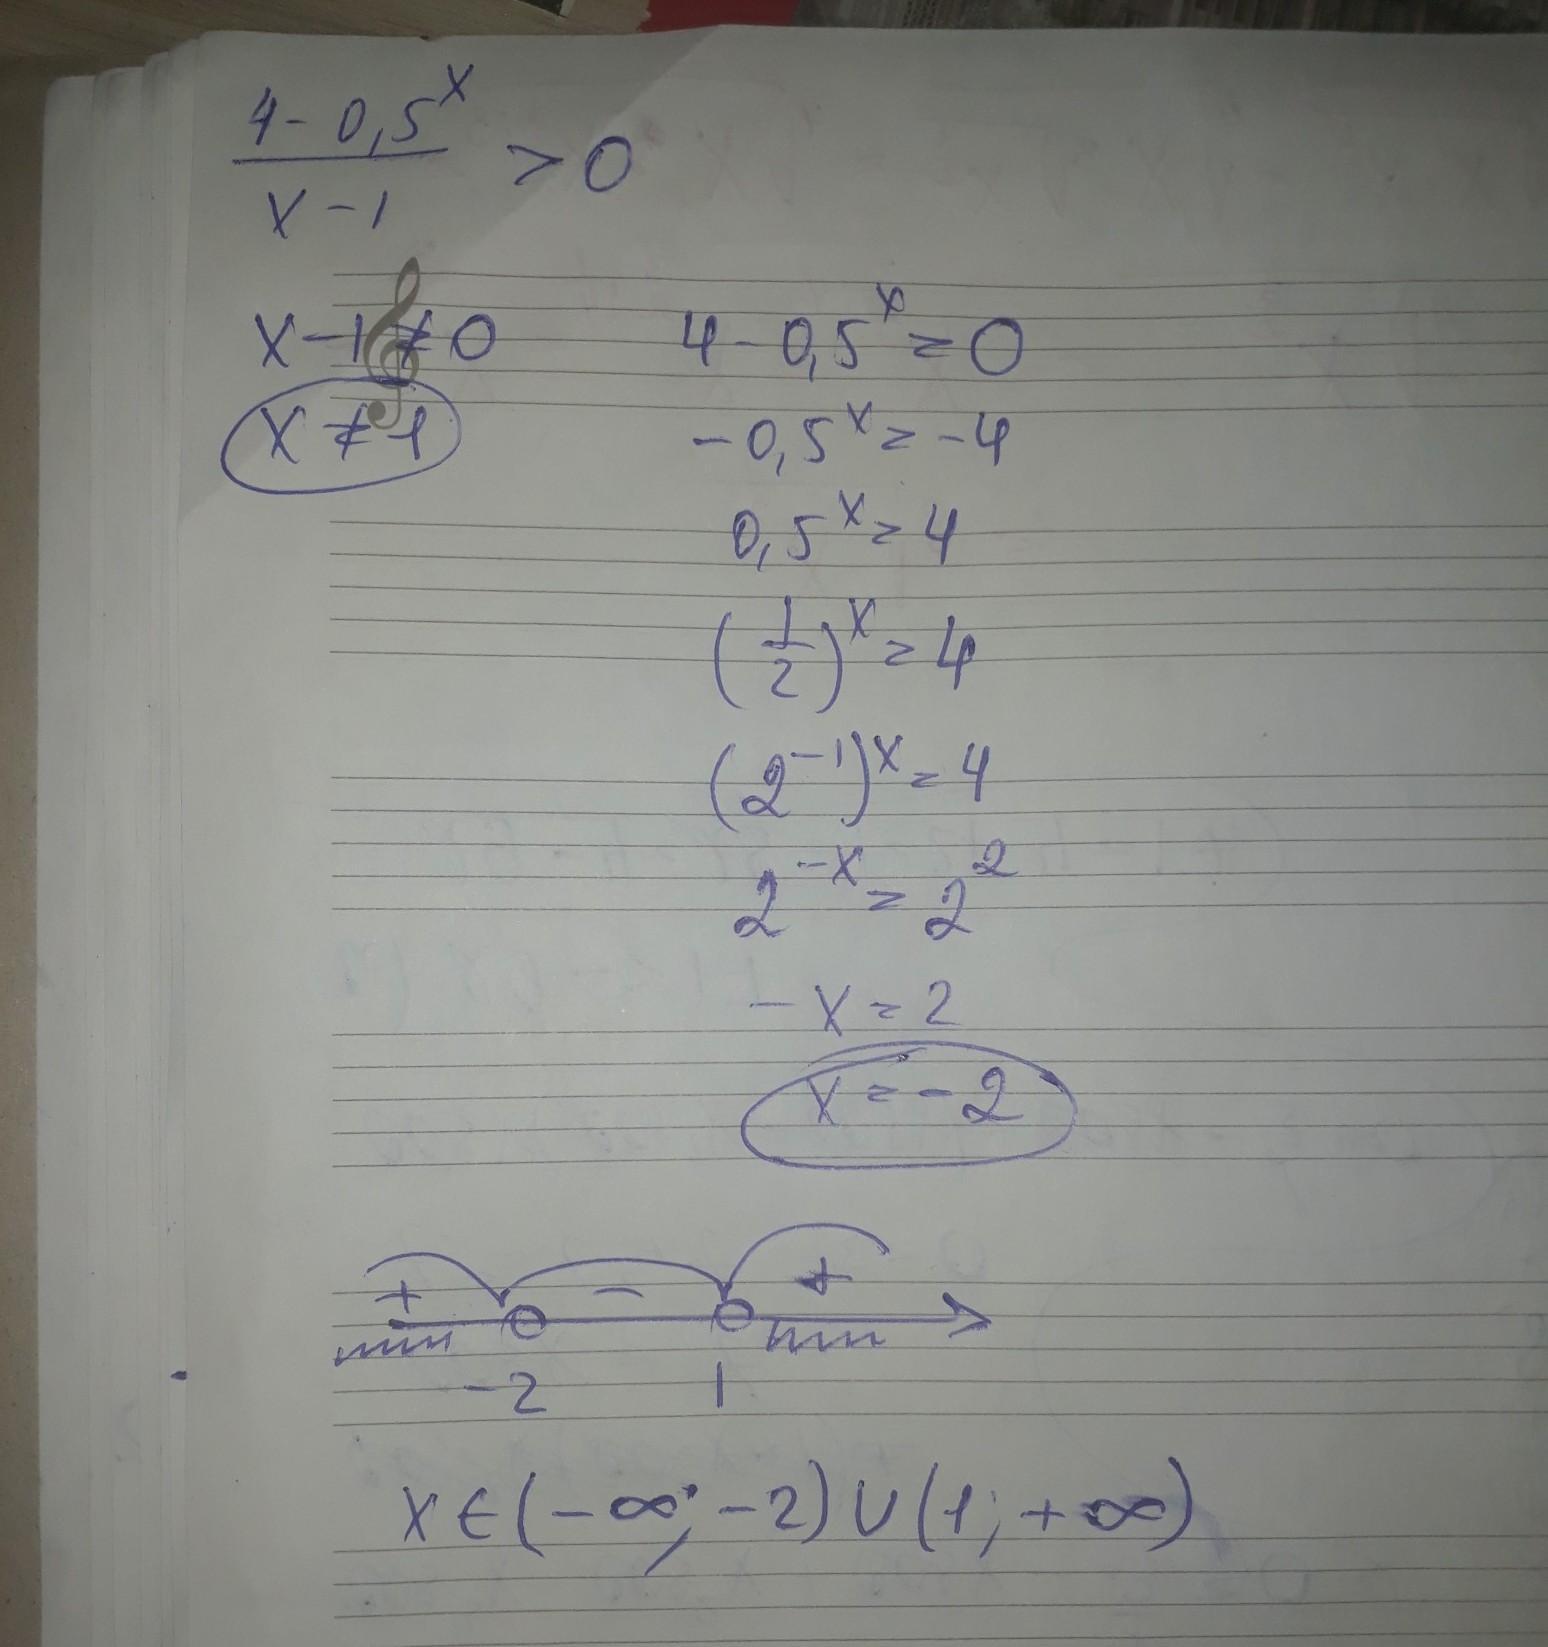 4 - 0,5^x
x - 1
> 0
x - 1 ≠ 0
x ≠ 1
4 - 0,5^x = 0
- 0,5^x = - 4
0,5^x = 4
(1/2)^x = 4
(2^-1)^x = 4
2^-x = 2^2
- x = 2
x = - 2
+ - +
-2 1
x ∈ (- ∞; - 2) ∪ (1; + ∞)